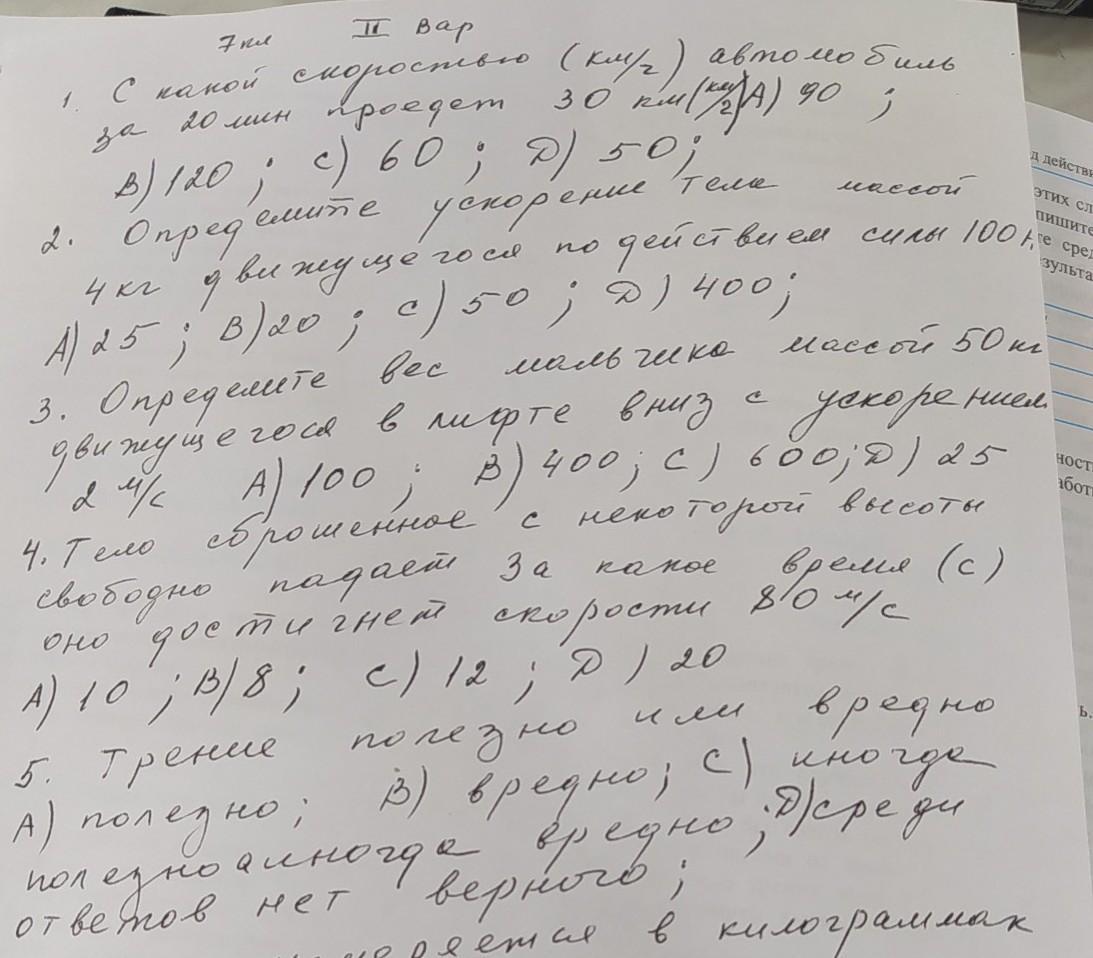 7кл II Вар
1. С какой скоростью (км/г) автомобиль
за 20 мин проедет 30 км (км/г) А) 90 ;
В) 120 ; С) 60 ; D) 50;
2. Определите ускорение тела массой
4кг движущегося по действием силы 100 н
А) 25 ; В) 20 ; С) 50 ; D) 400;
3. Определите вес мальчика массой 50 кг
движущегося в лифте вниз с ускорением
2 м/с А) 100 ; В) 400; С) 600; D) 25
4. Тело сброшенное с некоторой высоты
свободно падает За какое время (с)
оно достигнет скорости 80 м/с
А) 10 ; В) 8 ; С) 12 ; D) 20
5. Трение полезно или вредно
А) полезно; В) вредно; С) иногда
полезно а иногда вредно; D) среди
ответов нет верного;
в килограммах
д действи
этих сл
пишите
те сред
езульта
ност
работ
ь.